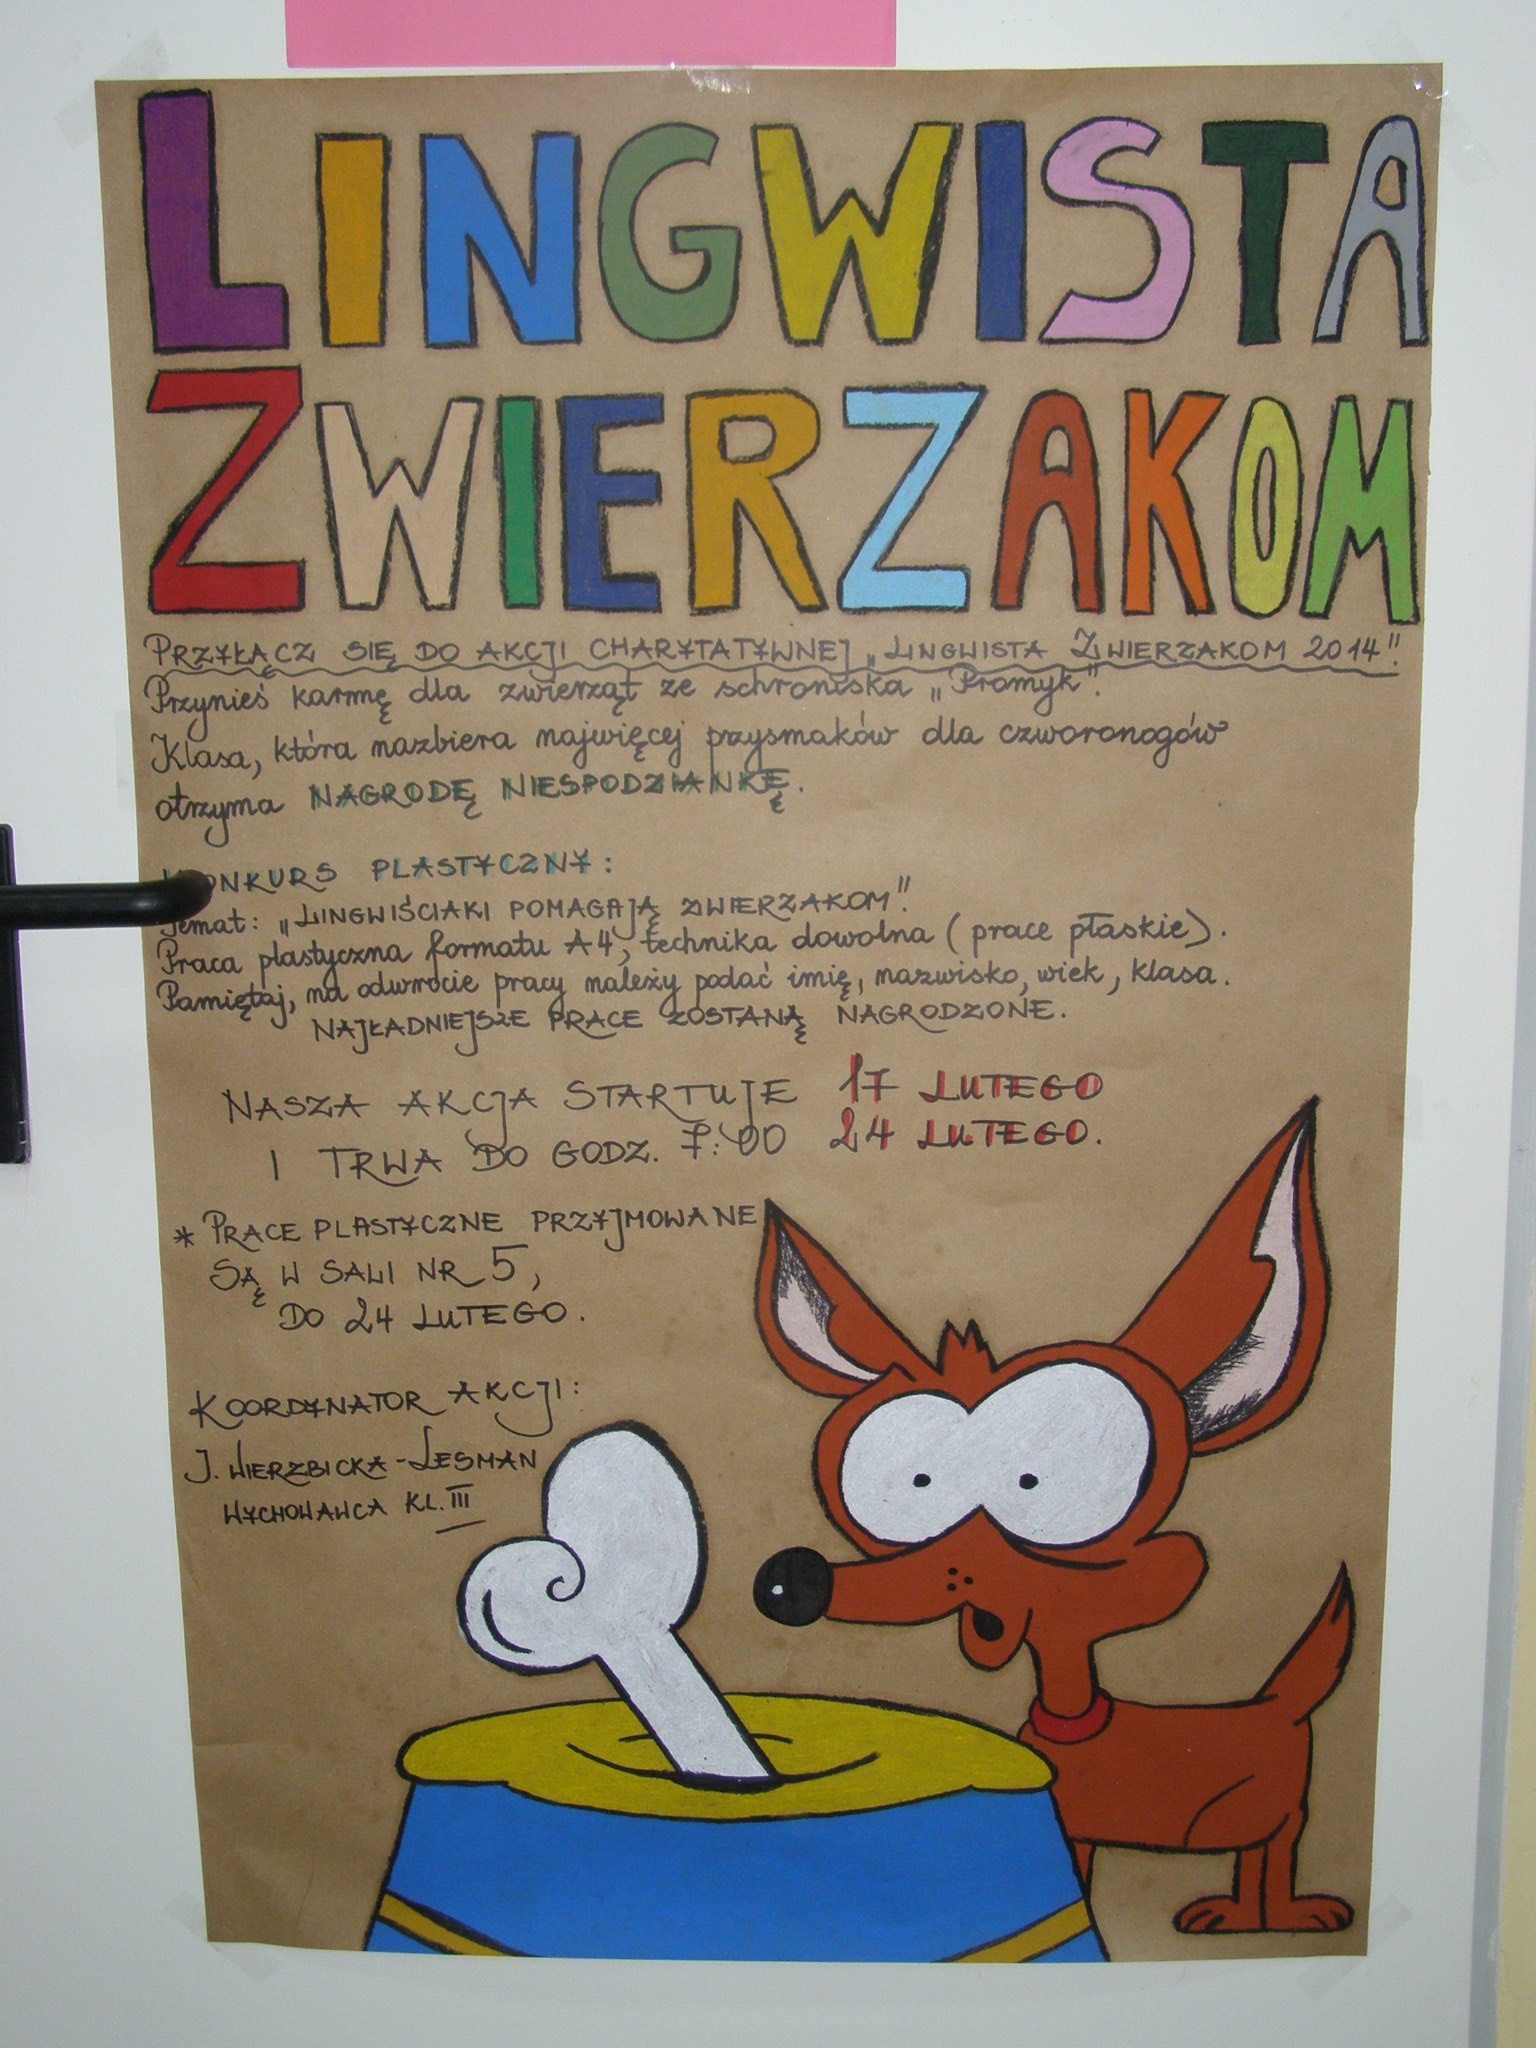 LINGWISTA
ZWIERZAKOM
PRZYŁĄCZ SIĘ DO AKCJI CHARYTATYWNEJ „LINGWISTA ZWIERZAKOM 2014".
Przynieś karmę dla zwierząt ze schroniska „Promyk".
Klasa, która nazbiera najwięcej przysmaków dla czworonogów
otrzyma NAGRODĘ NIESPODZIANKĘ.
KONKURS PLASTYCZNY:
Temat: „LINGWIŚCIAKI POMAGAJĄ ZWIERZAKOM".
Praca plastyczna formatu A4, technika dowolna (prace płaskie).
Pamiętaj, na odwrocie pracy należy podać imię, nazwisko, wiek, klasa.
NAJŁADNIEJSZE PRACE ZOSTANĄ NAGRODZONE.
NASZA AKCJA STARTUJE 17 LUTEGO
I TRWA DO GODZ. 7:00 24 LUTEGO.
* PRACE PLASTYCZNE PRZYJMOWANE
SĄ W SALI NR 5,
DO 24 LUTEGO.
KOORDYNATOR AKCJI:
J. WIERZBICKA-LESMAN
WYCHOWAWCA KL. III